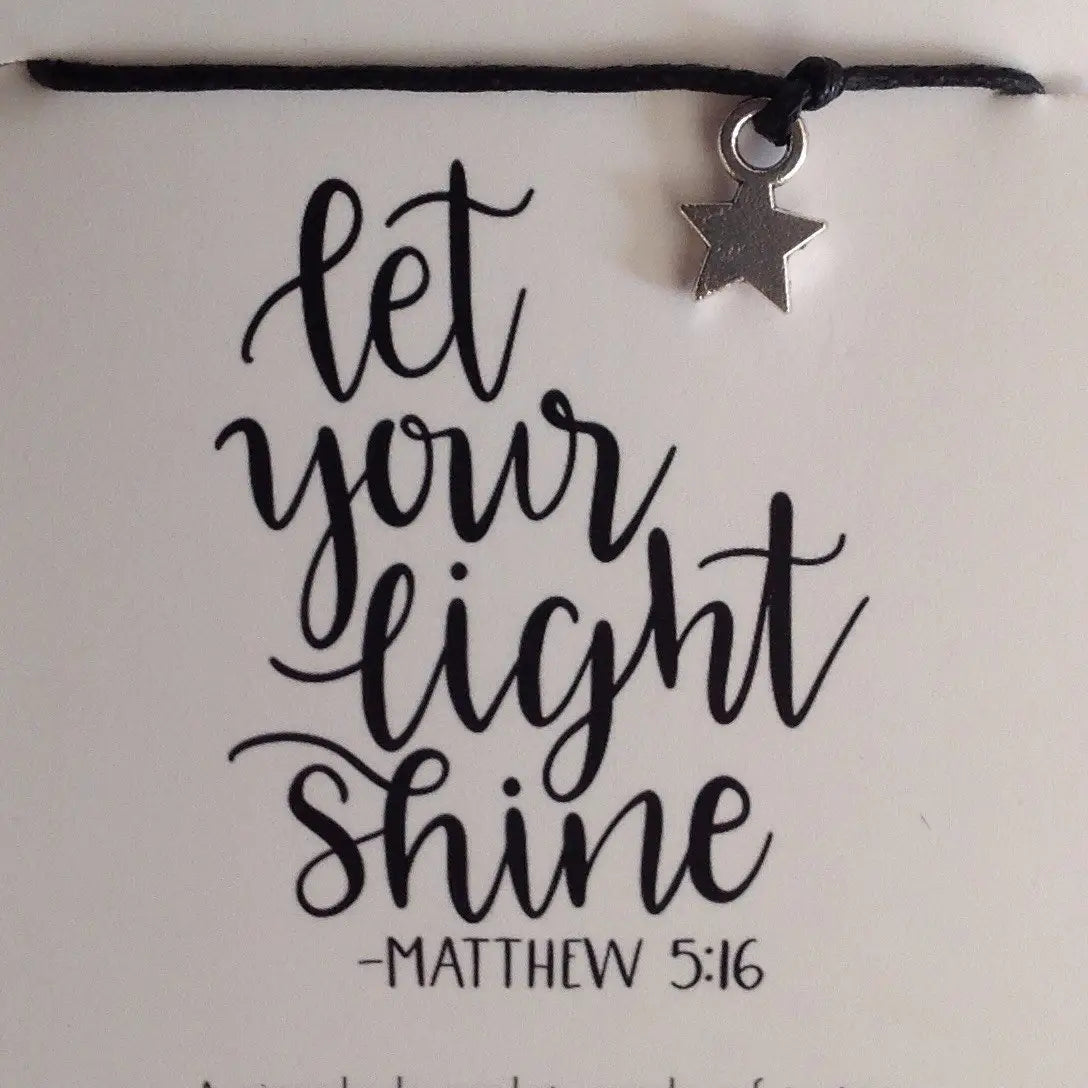 let
your
light
shine
-MATTHEW 5:16